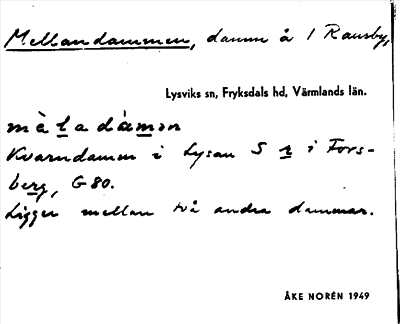 Mellandammen, damm å 1 Ransby,
Lysviks sn, Fryksdals hd, Värmlands län.
mèladàmən
Kvarndamm i Lysan S r i Fors-
berg, G 80.
Ligger mellan två andra dammar.
ÅKE NORÉN 1949